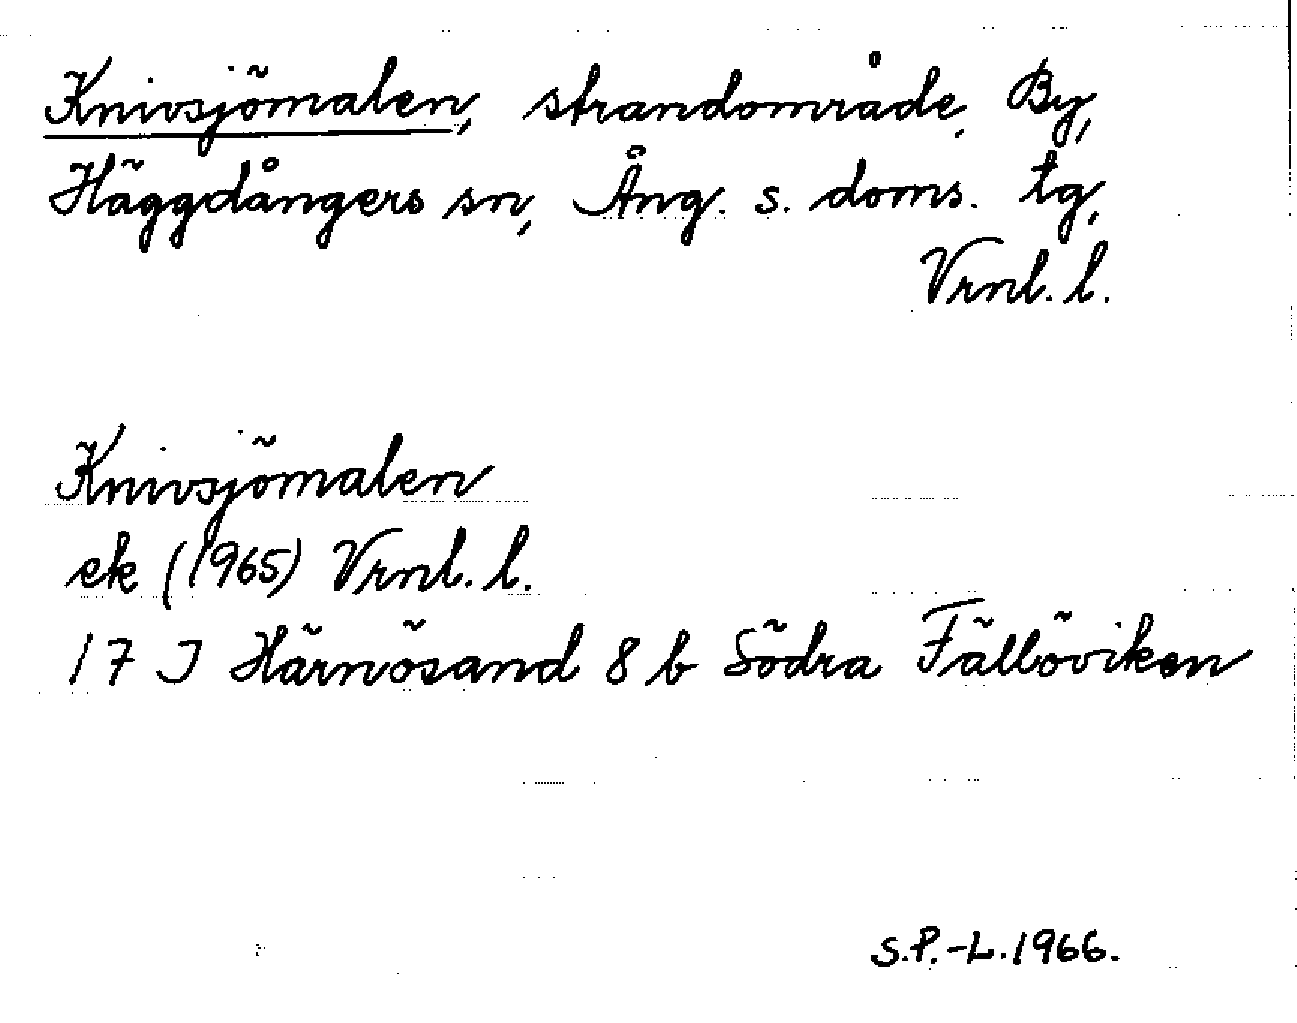 Knivsjömalen, strandområde, By,
Häggdångers sn, Ång. s. doms. tg,
Vrnl. l.
Knivsjömalen
ek (1965) Vrnl. l.
17 J Härnösand 8 b Södra Fällöviken
S.P.-L.1966.